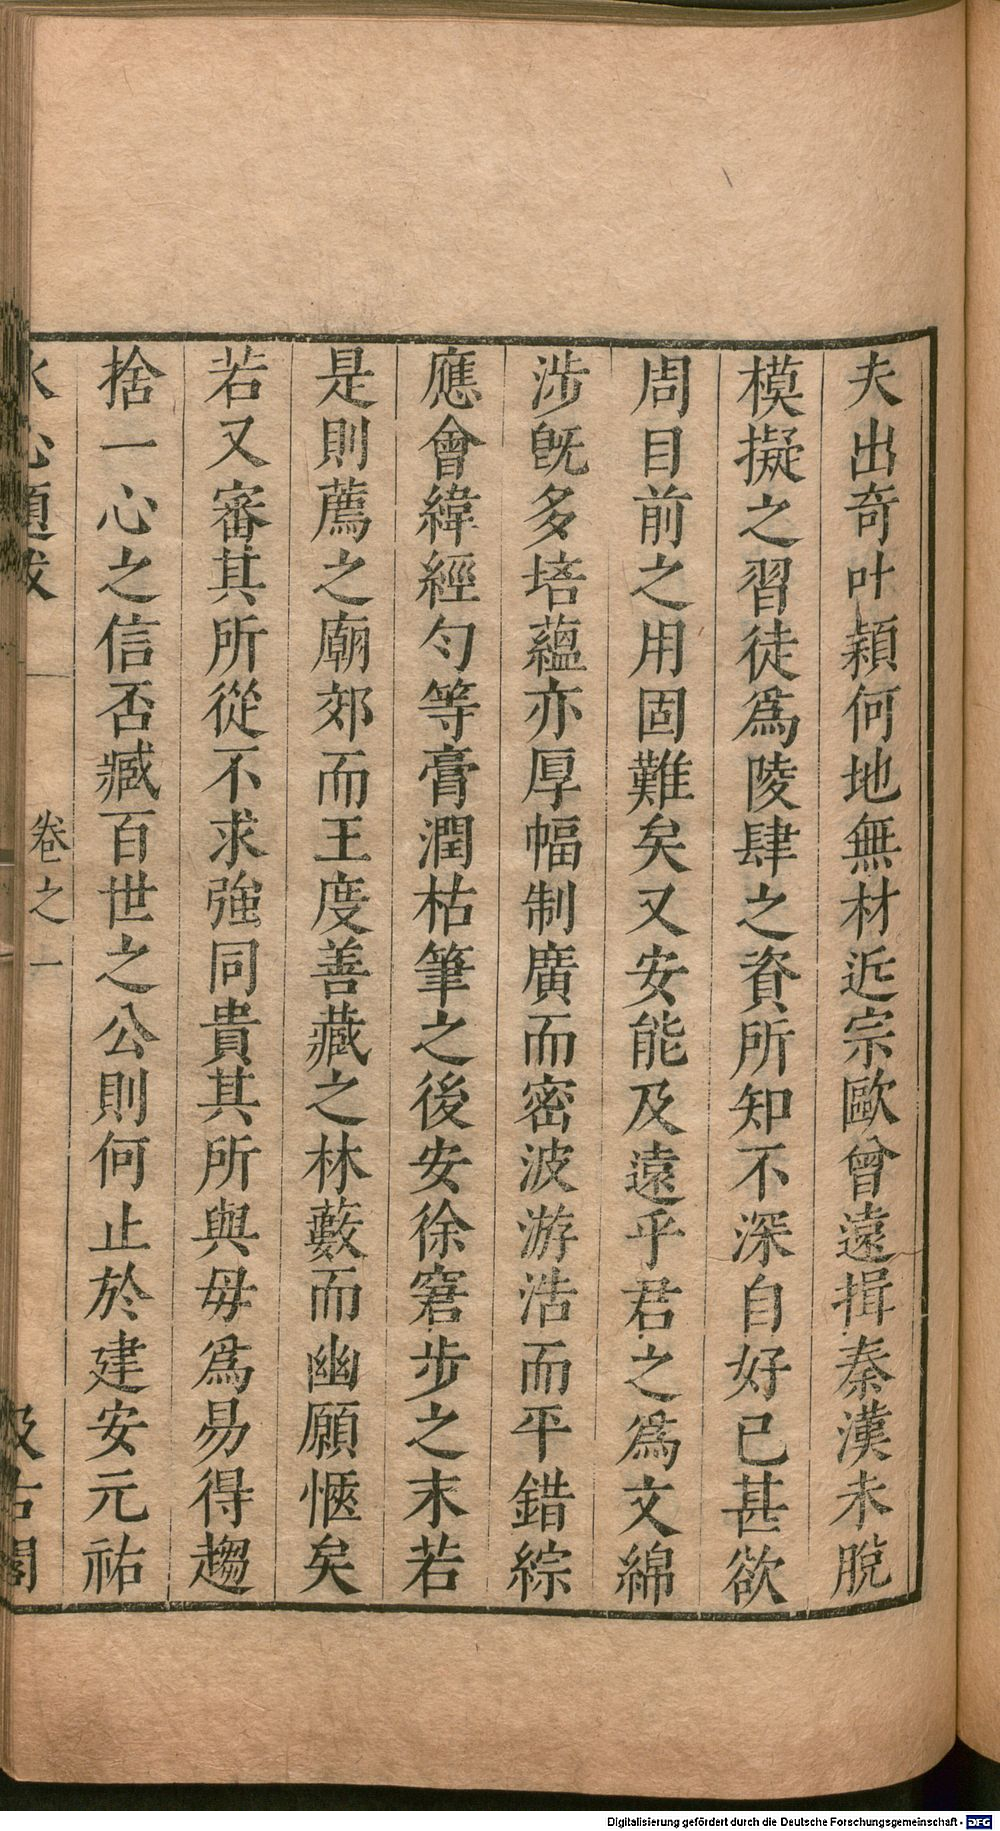 夫出奇吐穎何地無材近宗歐曾遠揖秦漢未脫
模擬之習徒爲陵肆之資所知不深自好已甚欲
周目前之用固難矣又安能及遠乎君之爲文綿
涉旣多培蘊亦厚幅制廣而密波游浩而平錯綜
應會緯經勻等膏潤枯筆之後安徐窘步之末若
是則薦之廟郊而王度善藏之林藪而幽願愜矣
若又審其所從不求強同貴其所與毋爲易得趨
捨一心之信否臧百世之公則何止於建安元祐
水心題跋 卷之一 汲古閣
Digitalisierung gefördert durch die Deutsche Forschungsgemeinschaft - DFG